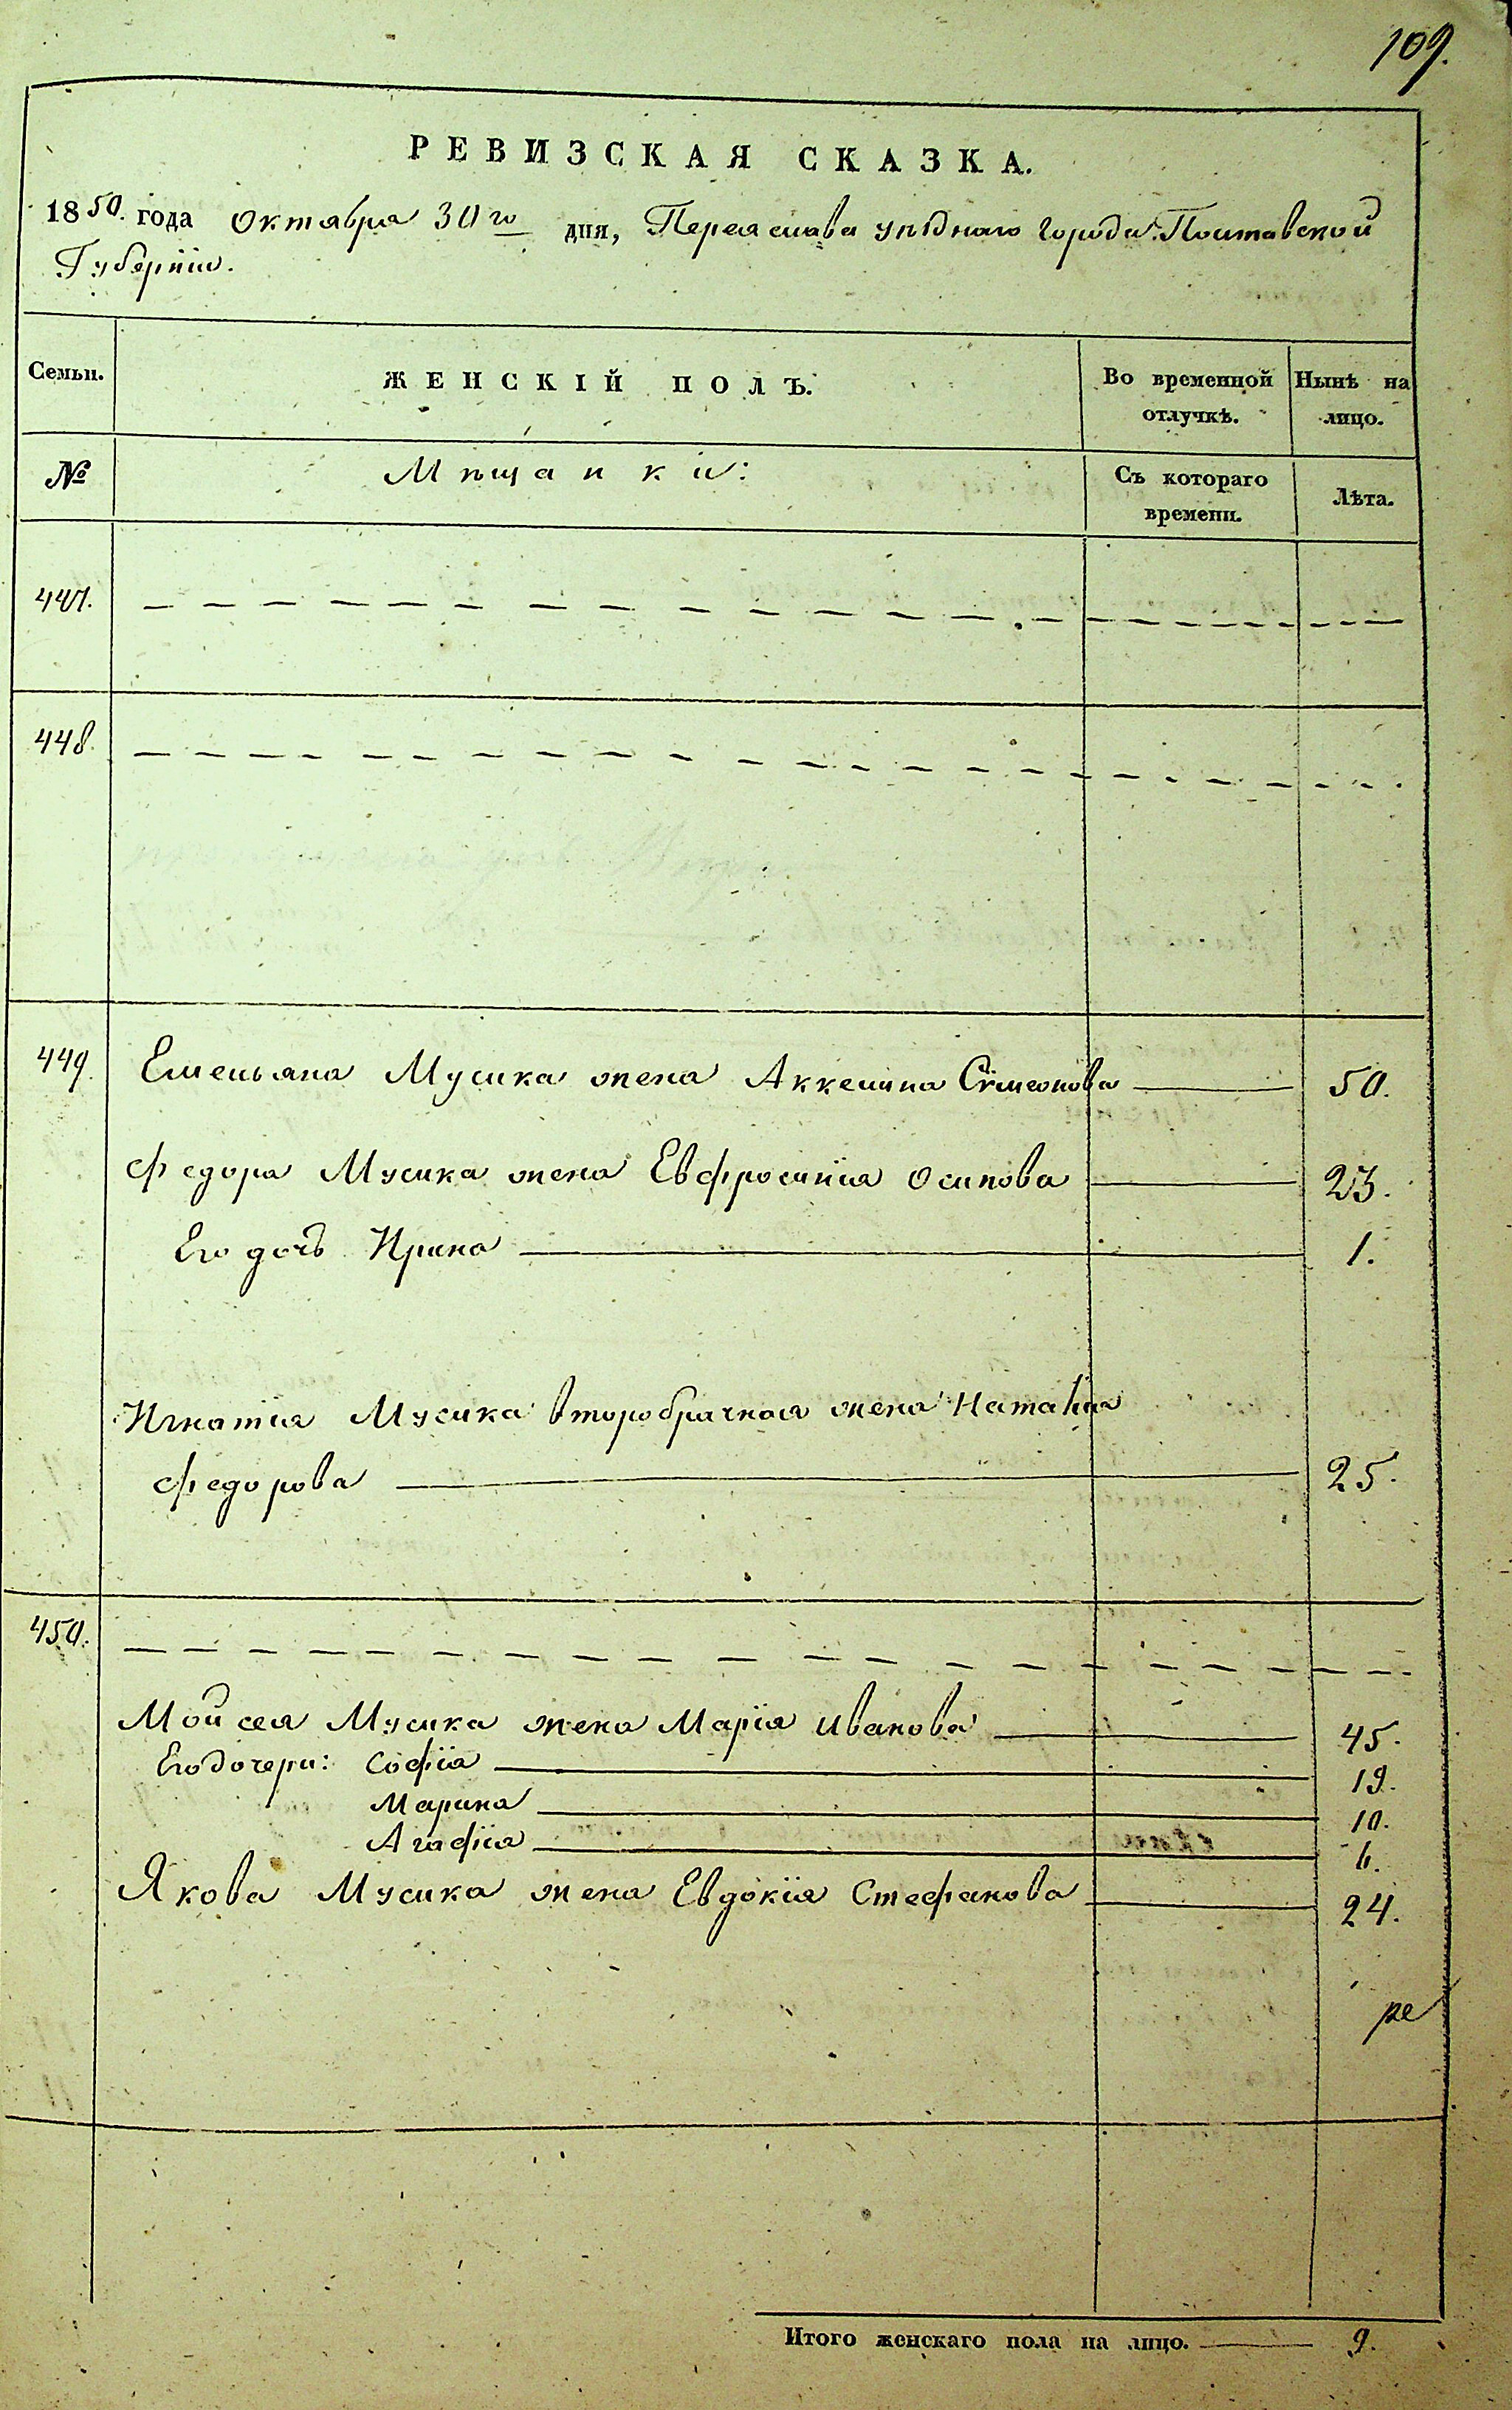 109.
РЕВИЗСКАЯ СКАЗКА.
1850. года Октября 30го дня, Переяслава уѣзднаго города Полтавской
Губерніи.
Семьи.
ЖЕНСКІЙ ПОЛЪ.
Во временной отлучкѣ.
Нынѣ на лицо.
№
Мѣщанки:
Съ котораго времени.
Лѣта.
447.
448.
449. Емельяна Мусика жена Аккелина Сѵмеонова 50.
Федора Мусика жена Евфросинія Осипова 23.
Его дочь Ирина 1.
Игнатія Мусика второбрачная жена Наталія
Федорова 25.
450.
Мойсея Мусика жена Марія Иванова 45.
Его дочери: Софія 19.
Марина 10.
Агафія 6.
Якова Мусика жена Евдокія Стефанова 24.
ре
Итого женскаго пола на лицо. 9.